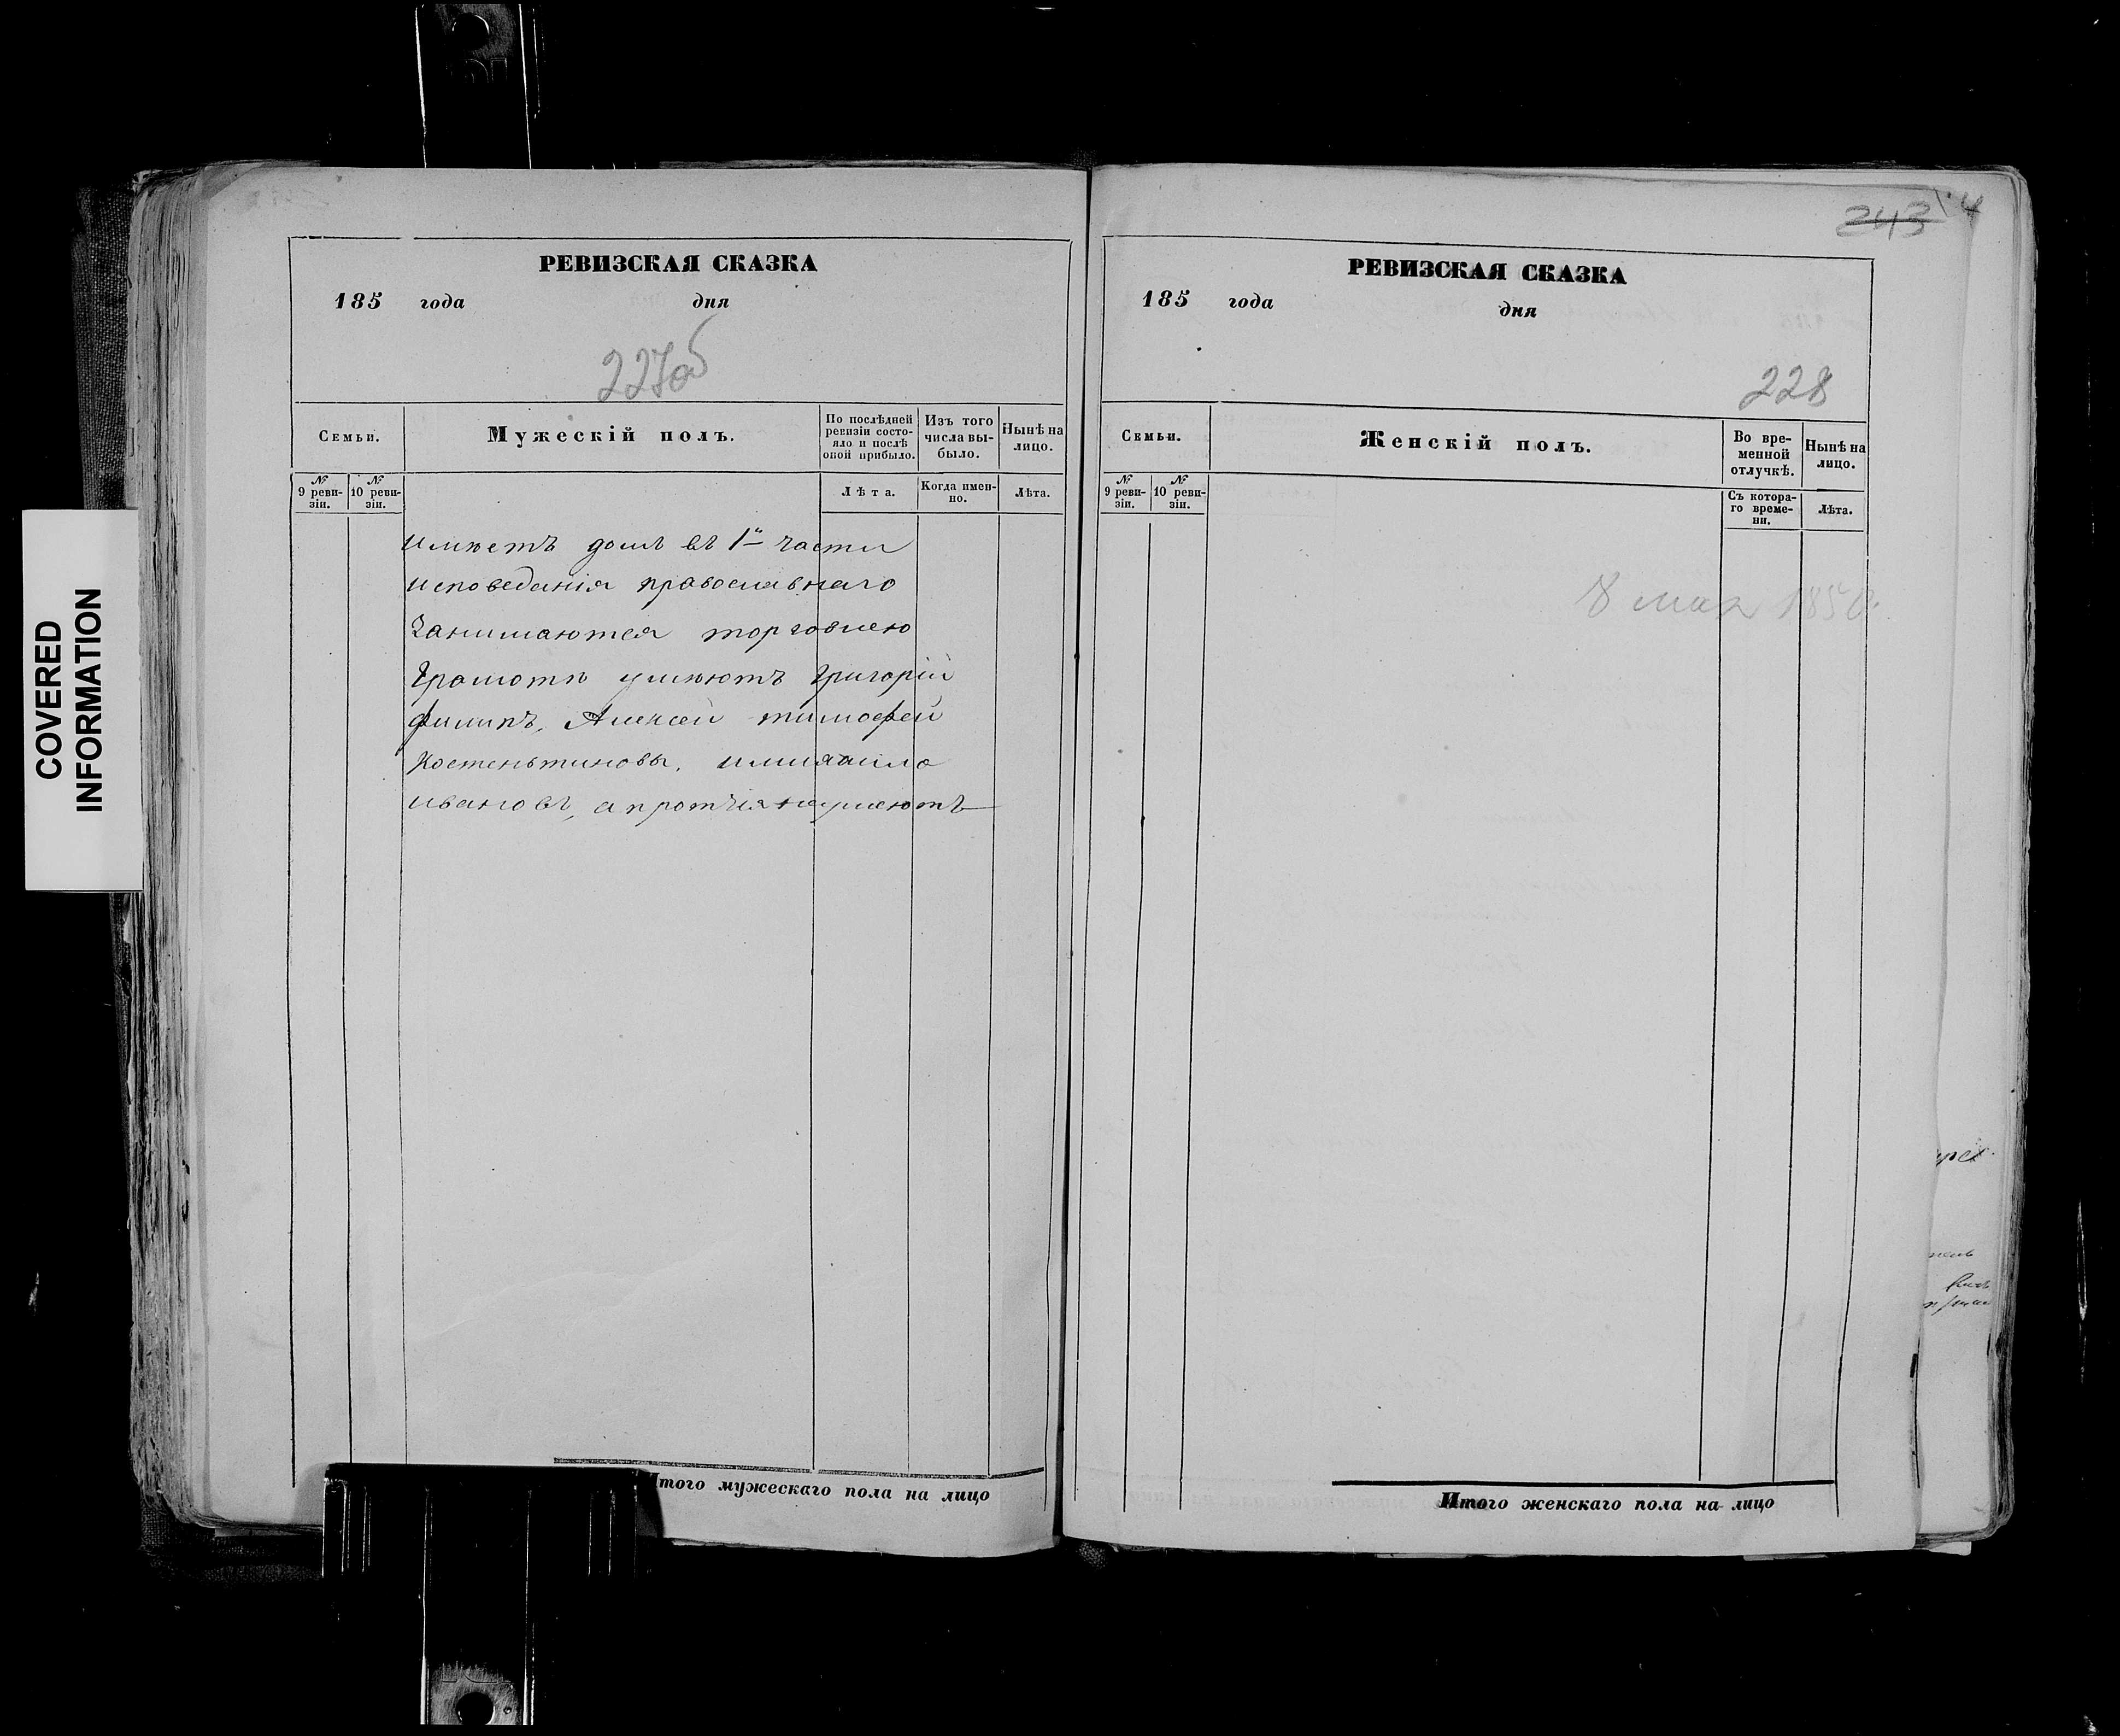 COVERED
INFORMATION
РЕВИЗСКАЯ СКАЗКА
185 года дня
227об
Семьи.
Мужескій полъ.
По послѣдней
ревизіи состо-
яло и послѣ
оной прибыло.
Изъ того
числа вы-
было.
Нынѣ на
лицо.
№
9 реви-
зіи.
№
10 реви-
зіи.
Лѣта.
Когда имен-
но.
Лѣта.
имѣетъ домъ въ 1й части
исповеданія православнаго
Занимаются торговлею
Грамотѣ умѣютъ Григорій
филипъ, Алексей тимофей
Костеньтиновы, имихаило
ивановъ, а протчія неумеютъ
Итого мужескаго пола на лицо
243
РЕВИЗСКАЯ СКАЗКА
185 года дня
228
Семьи.
Женскій полъ.
Во вре-
менной
отлучкѣ.
Нынѣ на
лицо.
№
9 реви-
зіи.
№
10 реви-
зіи.
Съ котора-
го време-
ни.
Лѣта.
8 мая 1858
Итого женскаго пола на лицо